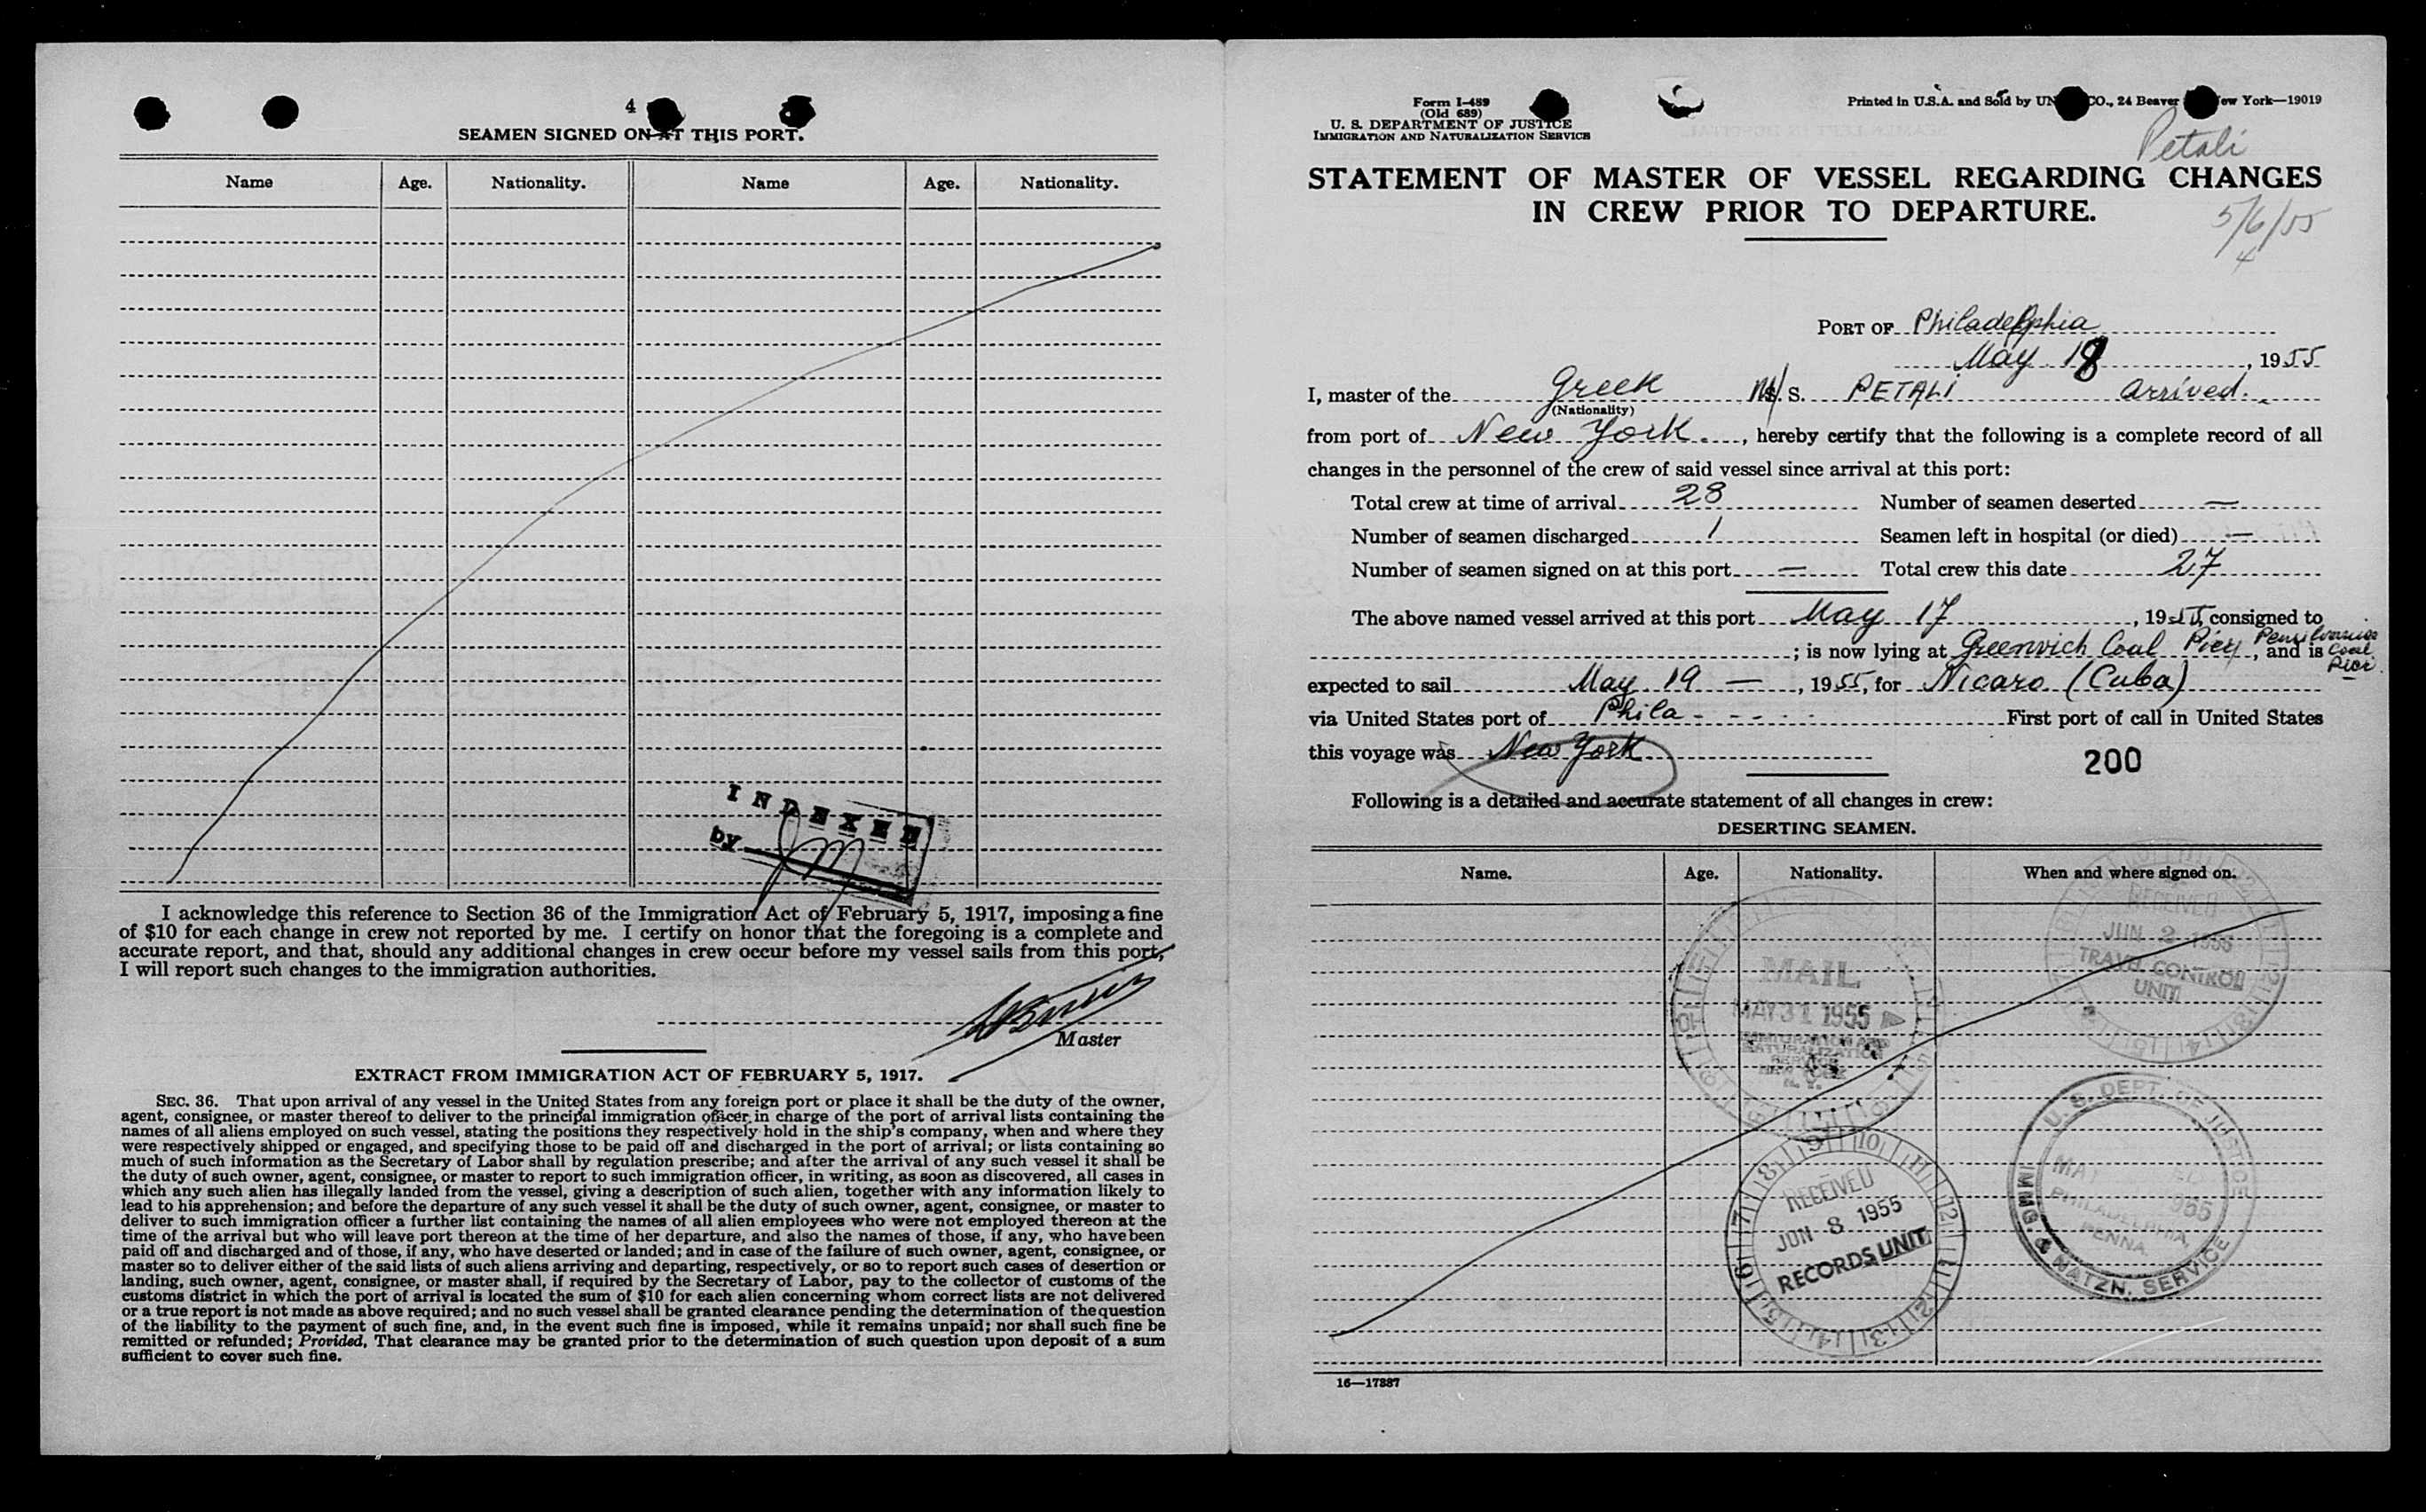 4
SEAMEN SIGNED ON AT THIS PORT.
Name Age. Nationality. Name Age. Nationality.
INDEXED
by
I acknowledge this reference to Section 36 of the Immigration Act of February 5, 1917, imposing a fine
of $10 for each change in crew not reported by me. I certify on honor that the foregoing is a complete and
accurate report, and that, should any additional changes in crew occur before my vessel sails from this port,
I will report such changes to the immigration authorities.
Master
EXTRACT FROM IMMIGRATION ACT OF FEBRUARY 5, 1917.
SEC. 36. That upon arrival of any vessel in the United States from any foreign port or place it shall be the duty of the owner,
agent, consignee, or master thereof to deliver to the principal immigration officer in charge of the port of arrival lists containing the
names of all aliens employed on such vessel, stating the positions they respectively hold in the ship's company, when and where they
were respectively shipped or engaged, and specifying those to be paid off and discharged in the port of arrival; or lists containing so
much of such information as the Secretary of Labor shall by regulation prescribe; and after the arrival of any such vessel it shall be
the duty of such owner, agent, consignee, or master to report to such immigration officer, in writing, as soon as discovered, all cases in
which any such alien has illegally landed from the vessel, giving a description of such alien, together with any information likely to
lead to his apprehension; and before the departure of any such vessel it shall be the duty of such owner, agent, consignee, or master to
deliver to such immigration officer a further list containing the names of all alien employees who were not employed thereon at the
time of the arrival but who will leave port thereon at the time of her departure, and also the names of those, if any, who have been
paid off and discharged and of those, if any, who have deserted or landed; and in case of the failure of such owner, agent, consignee, or
master so to deliver either of the said lists of such aliens arriving and departing, respectively, or so to report such cases of desertion or
landing, such owner, agent, consignee, or master shall, if required by the Secretary of Labor, pay to the collector of customs of the
customs district in which the port of arrival is located the sum of $10 for each alien concerning whom correct lists are not delivered
or a true report is not made as above required; and no such vessel shall be granted clearance pending the determination of the question
of the liability to the payment of such fine, and, in the event such fine is imposed, while it remains unpaid; nor shall such fine be
remitted or refunded; Provided, That clearance may be granted prior to the determination of such question upon deposit of a sum
sufficient to cover such fine.
Form I-489
(Old 689)
U. S. DEPARTMENT OF JUSTICE
IMMIGRATION AND NATURALIZATION SERVICE
Printed in U.S.A. and Sold by UN CO., 24 Beaver ew York—19019
Petali
STATEMENT OF MASTER OF VESSEL REGARDING CHANGES
IN CREW PRIOR TO DEPARTURE.
5/6/55
4
PORT OF Philadelphia
May 18, 1955
I, master of the Greek M/S. PETALI arrived.
(Nationality)
from port of New York., hereby certify that the following is a complete record of all
changes in the personnel of the crew of said vessel since arrival at this port:
Total crew at time of arrival 28 Number of seamen deserted —
Number of seamen discharged 1 Seamen left in hospital (or died) —
Number of seamen signed on at this port — Total crew this date 27
The above named vessel arrived at this port May 17, 1955, consigned to
; is now lying at Greenwich Coal Pier, and is
Coal
Pier
expected to sail May 19 —, 1955, for Nicaro (Cuba)
via United States port of Phila - - - - First port of call in United States
this voyage was New York
200
Following is a detailed and accurate statement of all changes in crew:
DESERTING SEAMEN.
Name. Age. Nationality. When and where signed on.
RECEIVED
JUN 2 1955
TRAVEL CONTROL
UNIT
MAIL
MAY 31 1955
IMMIGRATION AND
NATURALIZATION
SERVICE
NEW YORK
N. Y.
RECEIVED
JUN 8 1955
RECORDS UNIT
U. S. DEPT. OF JUSTICE
PHILADELPHIA,
PENNA.
IMMG. & NATZN. SERVICE
16—17887